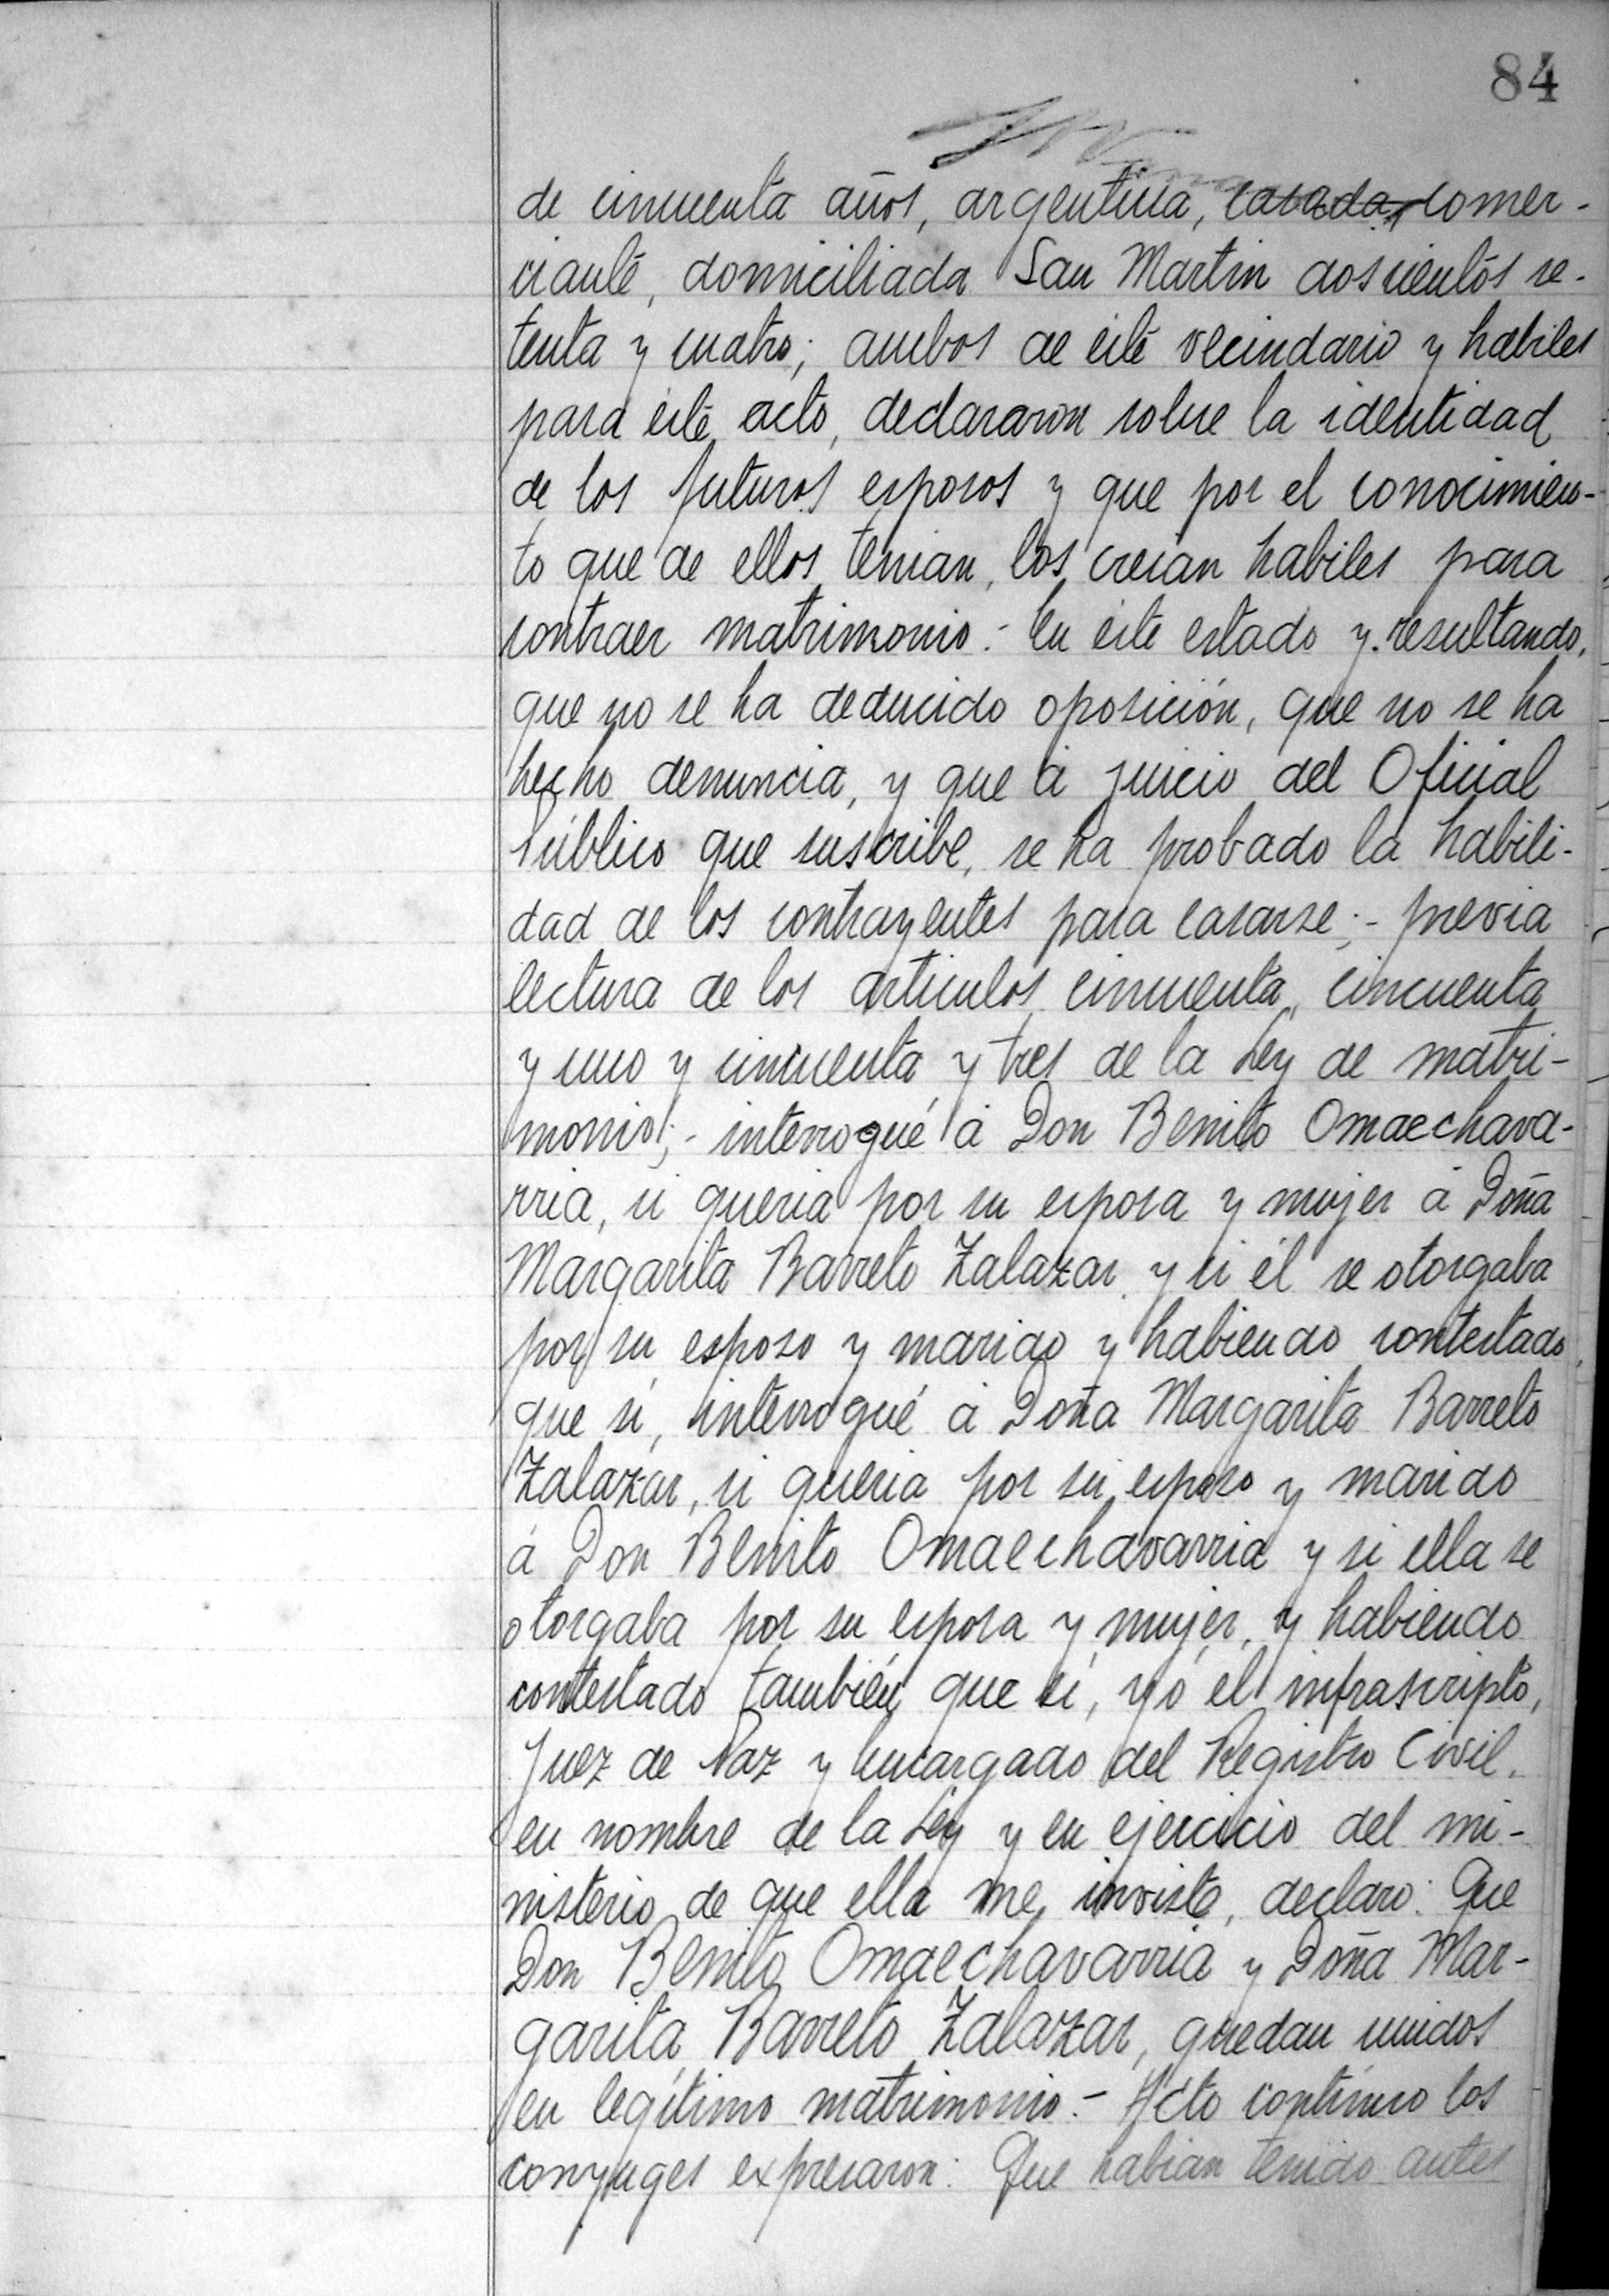 84
de cincuenta años, argentina, casada, comer-
ciante, domiciliada San Martin doscientos se-
tenta y cuatro; ambos de éste vecindario y habiles
para éste acto, declararon sobre la identidad
de los futuros esposos y que por el conocimien-
to que de ellos tenian, los creian habiles para
contraer matrimonio.- En éste estado y resultando,
que no se ha deducido oposición, que no se ha
hecho denuncia, y que á juicio del Oficial
Público que suscribe, se ha probado la habili-
dad de los contrayentes para casarse;- previa
lectura de los articulos cincuenta, cincuenta
y uno y cincuenta y tres de la Ley de matri-
monio;- interrogué á Don Benito Omaechava-
rria, si queria por su esposa y mujer á Doña
Margarita Barreto Zalazar y si él se otorgaba
por su esposo y marido y habiendo contestado,
que si, interrogué á Doña Margarita Barreto
Zalazar, si queria por su esposo y marido
á Don Benito Omaechavarria y si ella se
otorgaba por su esposa y mujer, y habiendo
contestado también que sí, yó el infrascripto,
Juez de Paz y Encargado del Registro Civil,
en nombre de la Ley y en ejercicio del mi-
nisterio de que ella me inviste, declaro: Que
Don Benito Omaechavarria y Doña Mar-
garita Barreto Zalazar, quedan unidos
en legítimo matrimonio.- Acto contínuo los
conyuges expresaron: Que habian tenido antes